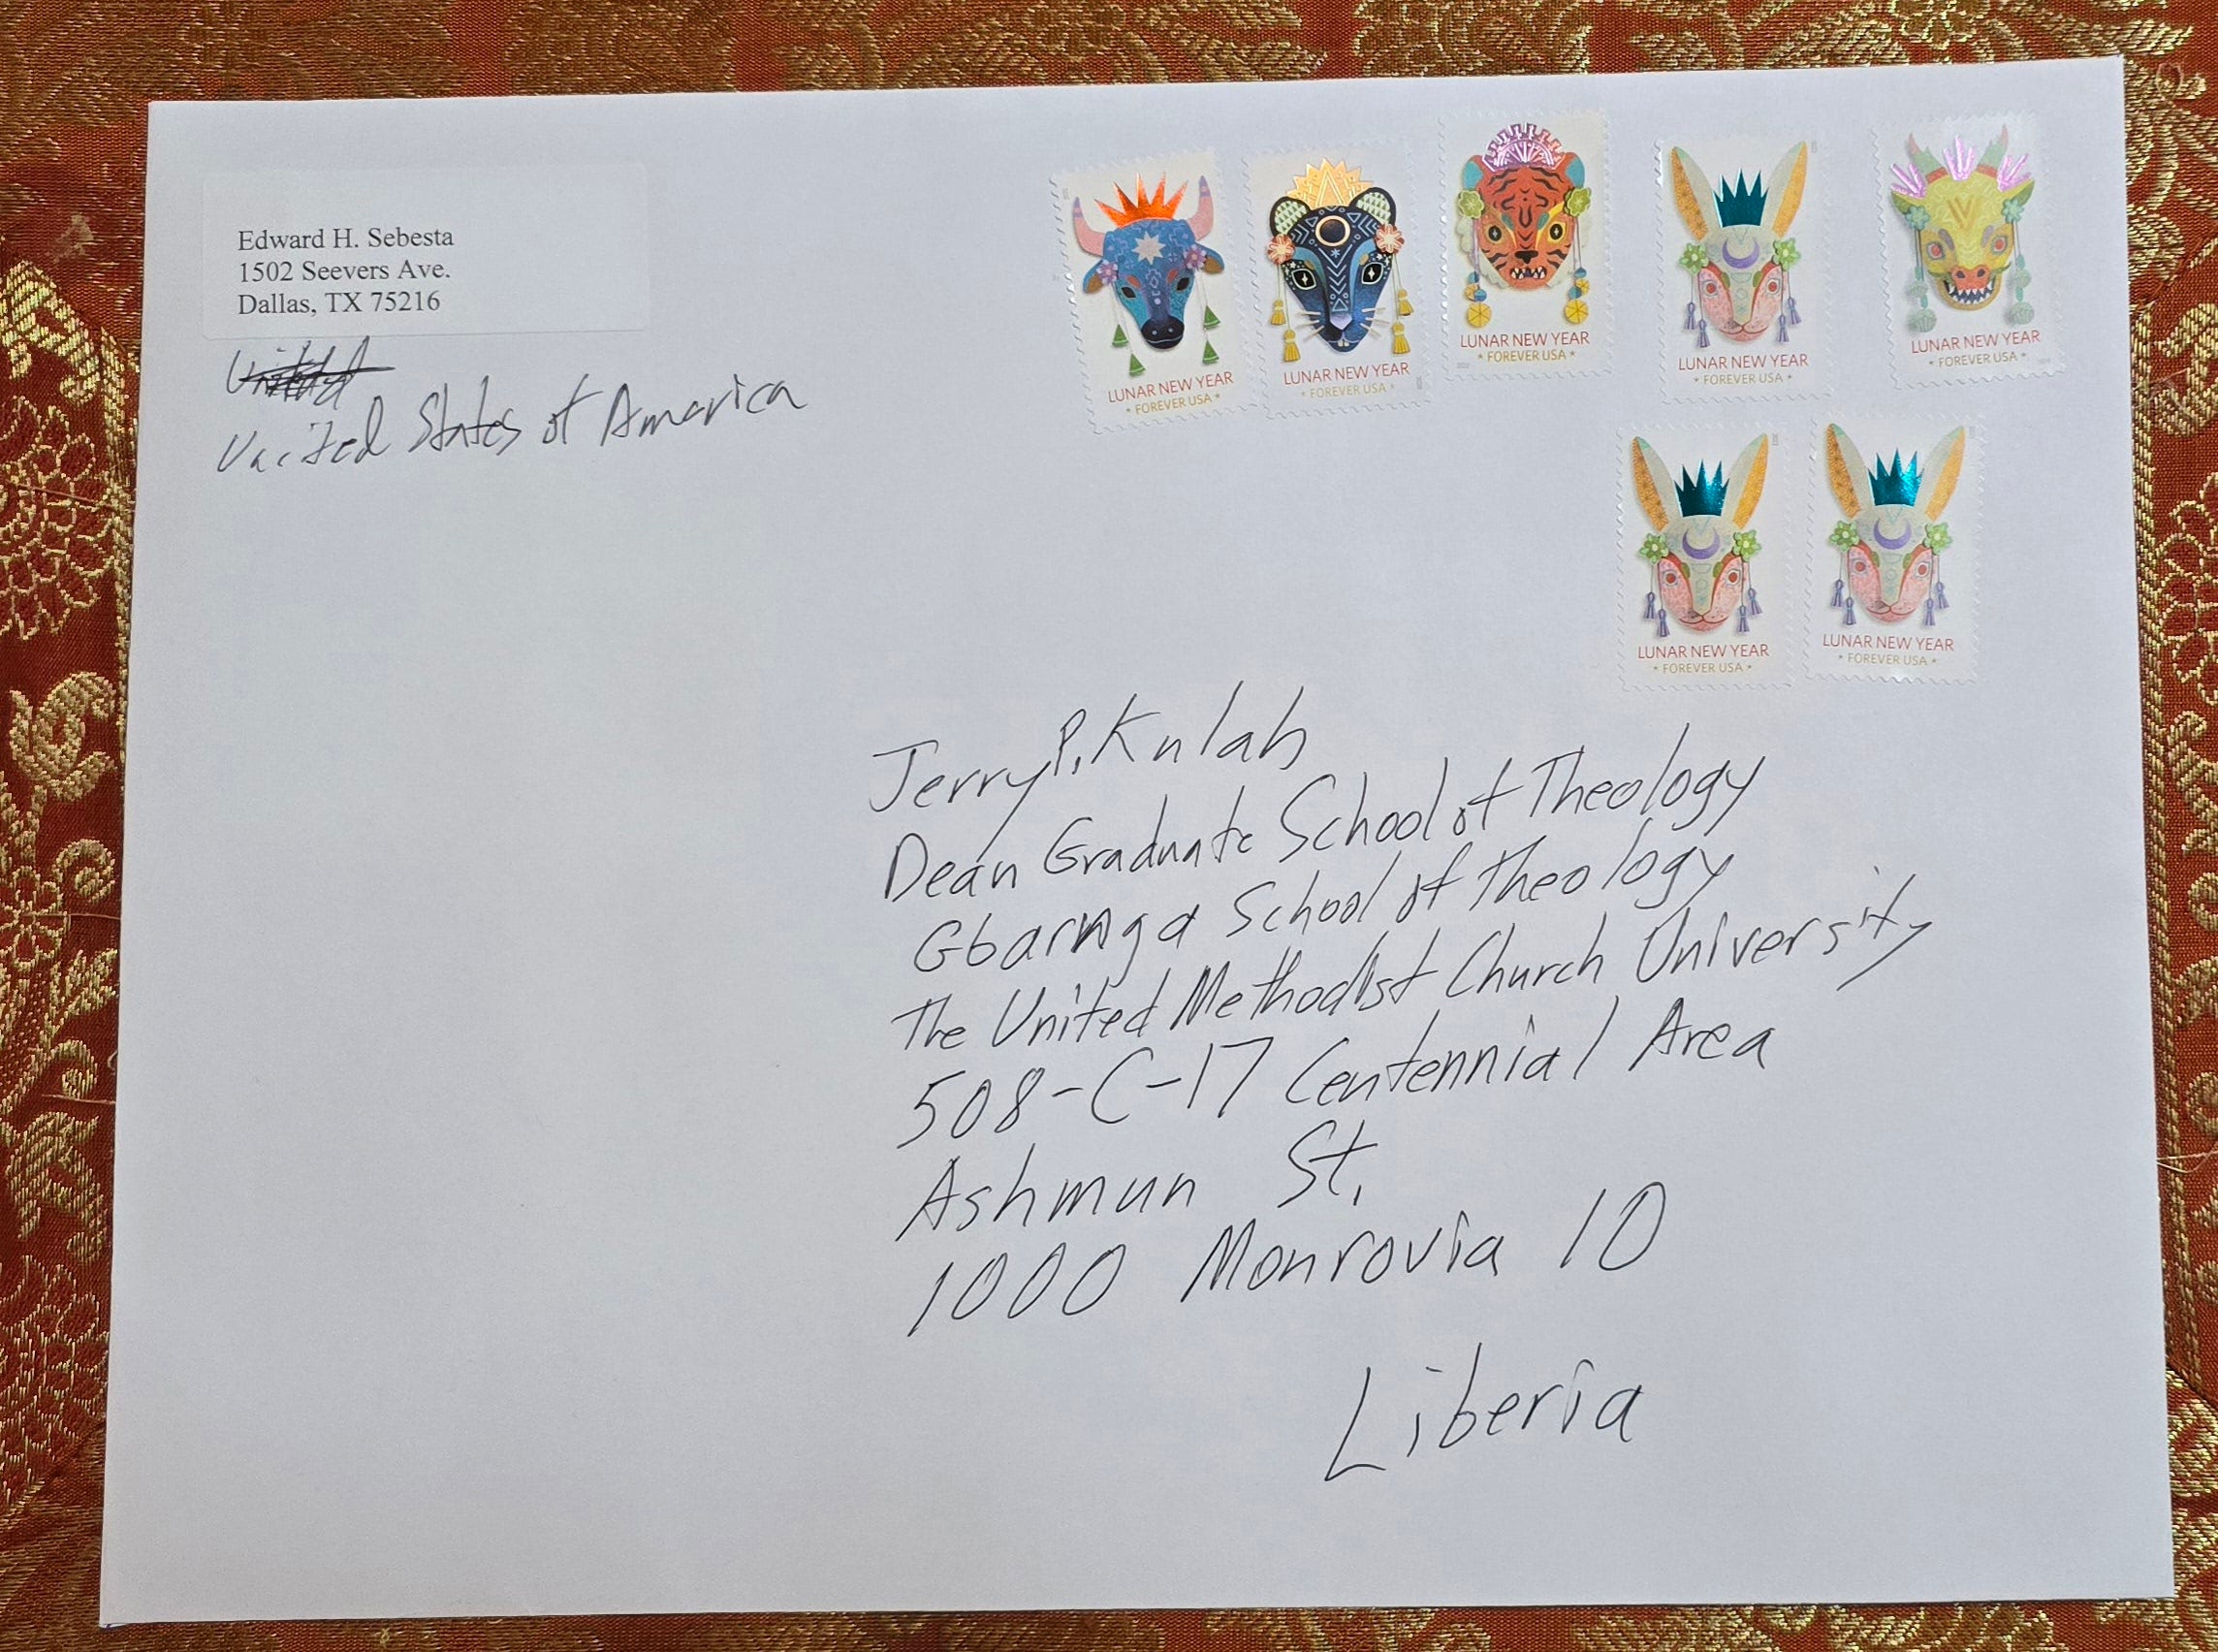 Edward H. Sebesta
1502 Seevers Ave.
Dallas, TX 75216
United States of America
LUNAR NEW YEAR
* FOREVER USA *
LUNAR NEW YEAR
* FOREVER USA *
LUNAR NEW YEAR
* FOREVER USA *
LUNAR NEW YEAR
* FOREVER USA *
LUNAR NEW YEAR
* FOREVER USA *
LUNAR NEW YEAR
* FOREVER USA *
LUNAR NEW YEAR
* FOREVER USA *
Jerry P. Kulah
Dean Graduate School of Theology
Gbarnga School of Theology
The United Methodist Church University
508-C-17 Centennial Area
Ashmun St.
1000 Monrovia 10
Liberia